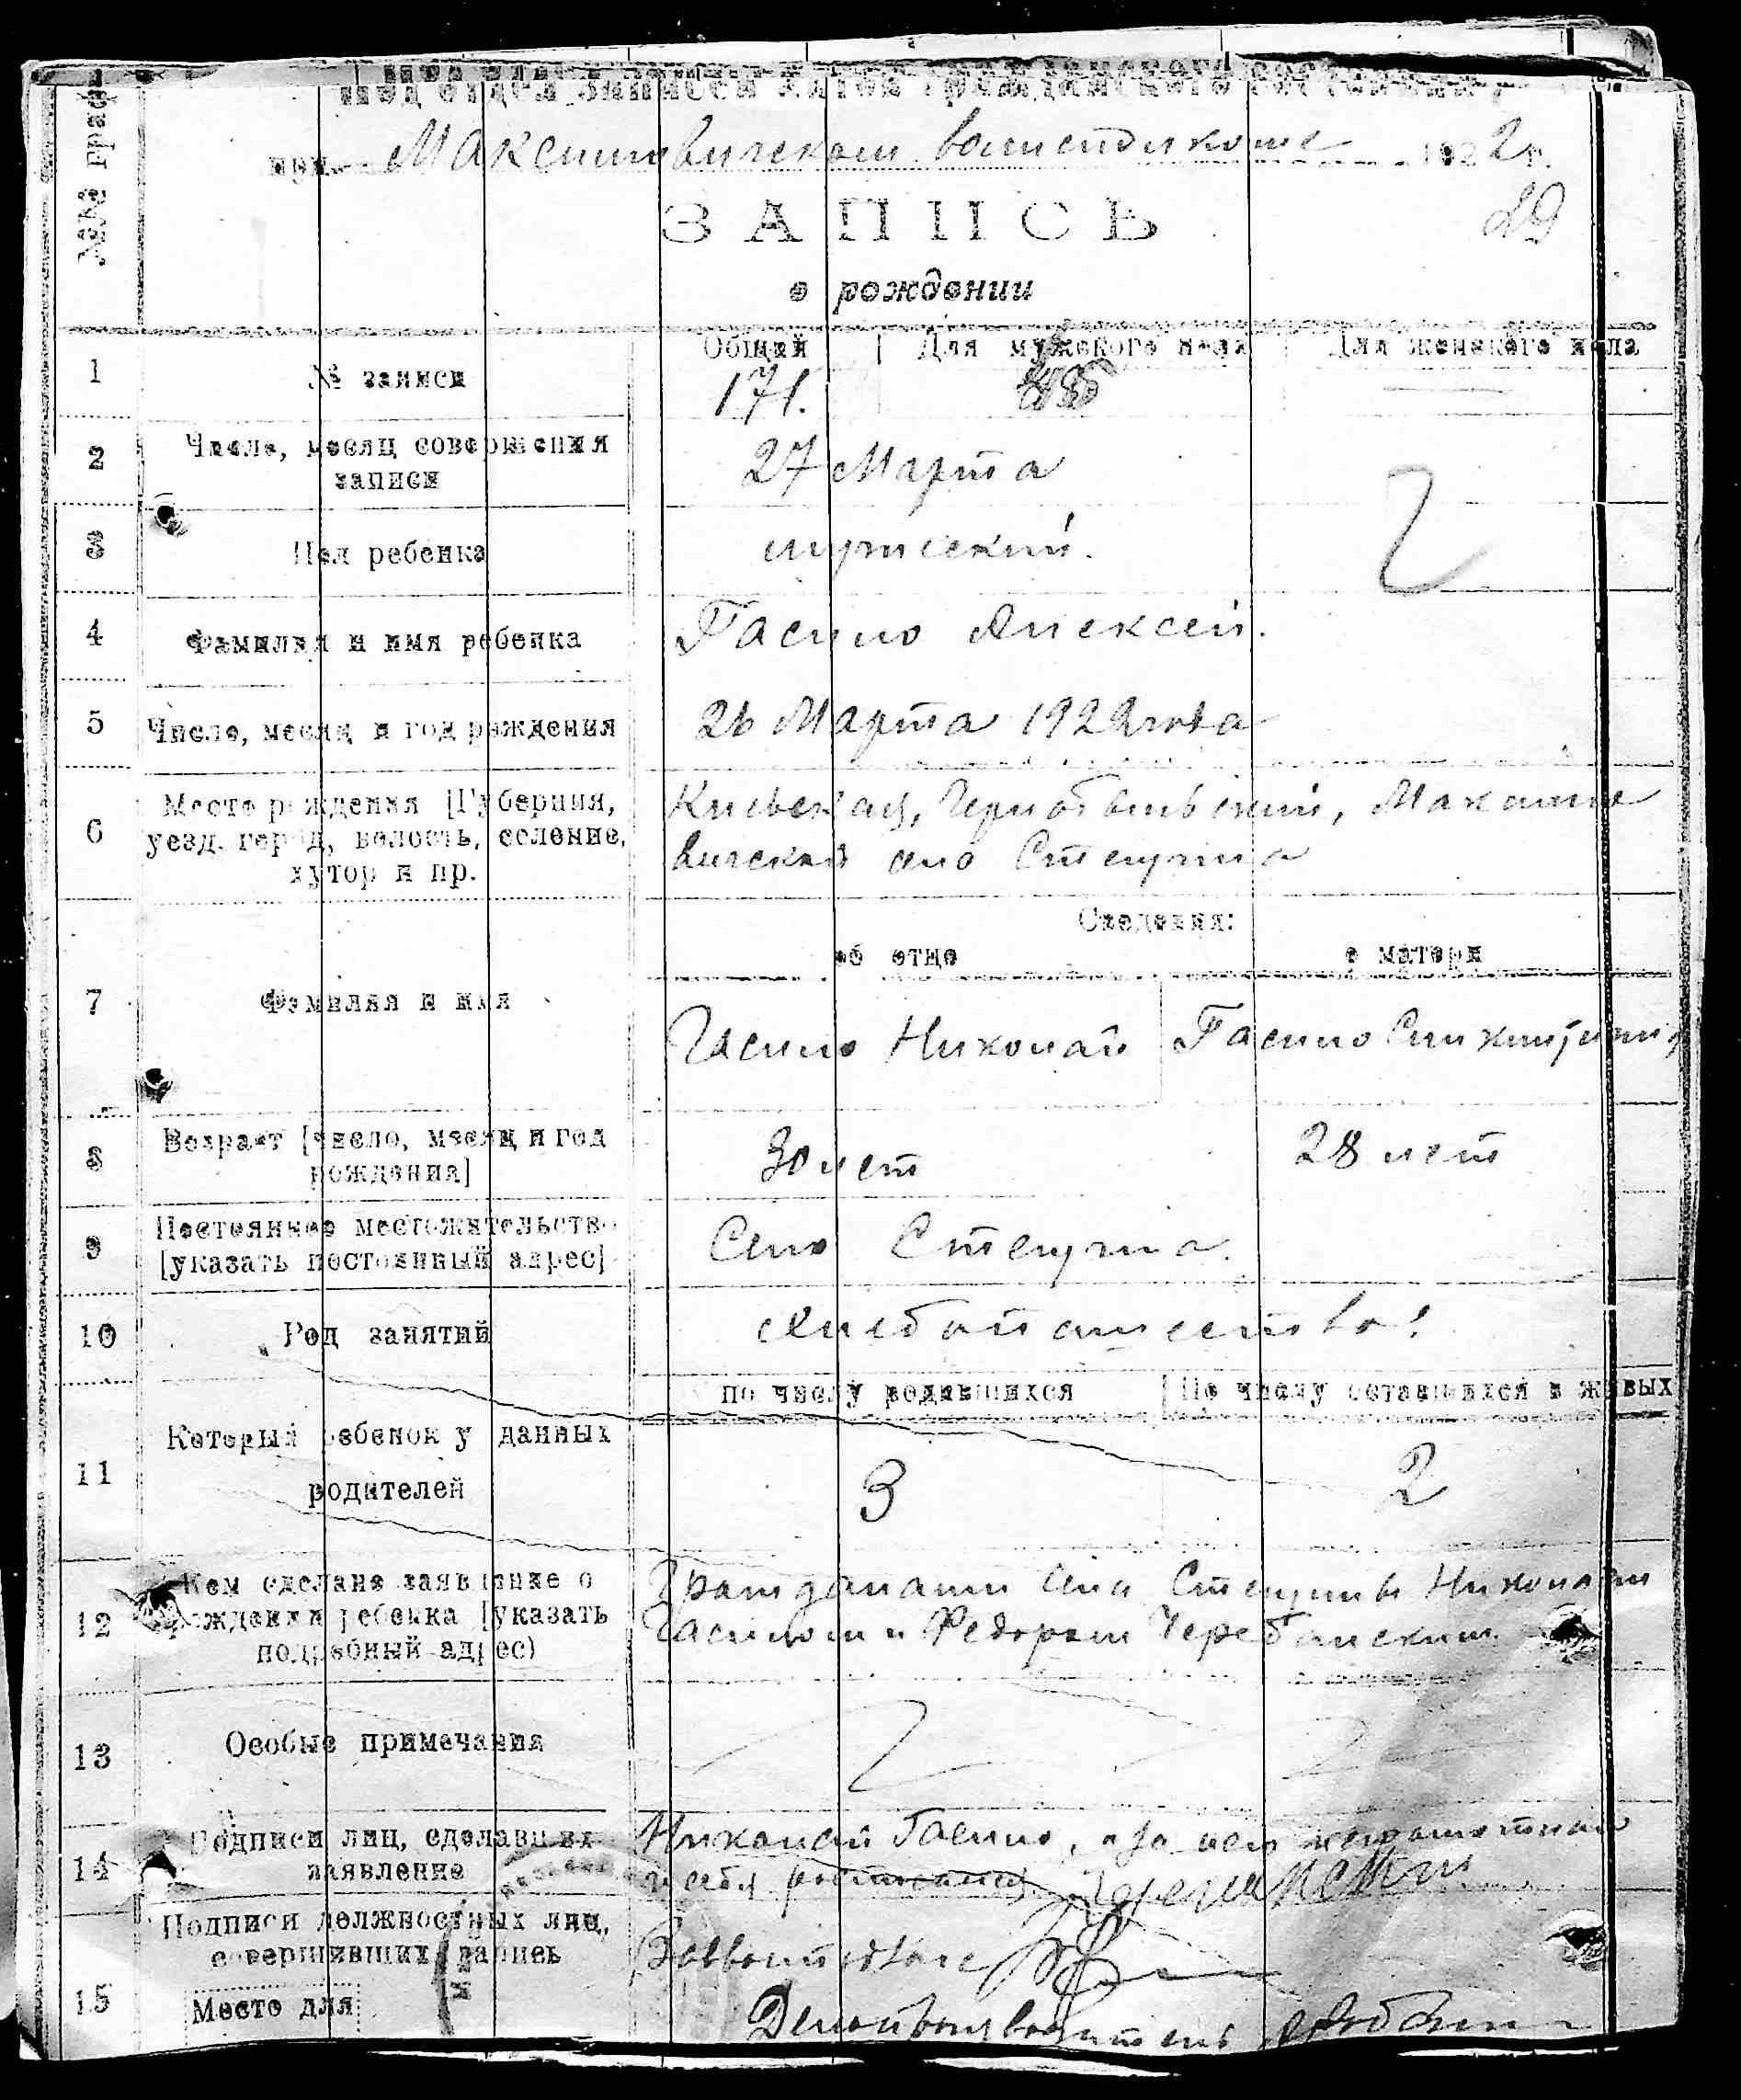 Под'отдел записей актов гражданского состояния
при Максимовическом волисполкоме 1922 г.
29
ЗАПИСЬ
о рождении
№№ граф
Общий Для мужского пола Для женского пола
1 № записи 171.
2 Число, месяц совершения записи 27 Марта
3 Пол ребенка мужской.
4 Фамилия и имя ребенка Гасило Алексей.
5 Число, месяц и год рождения 26 Марта 1922 года
6 Место рождения [Губерния, Киевская, Чернобыльский, Максимо
уезд, город, волость, селение, вической село Стещина
хутор и пр.
Сведения:
об отце о матери
7 Фамилия и имя Гасило Николай Гасило
8 Возраст [число, месяц и год рождения] 30 лет 28 лет
9 Постоянное местожительство
[указать постоянный адрес] Село Стещина.
10 Род занятий Хлебопашество
по числу родившихся По числу оставшихся в живых
11 Который ребенок у данных
родителей 3 2
12 Кем сделано заявление о Гражданами села Стещины Николаем
рождении ребенка [указать Гасилом и Федором
подробный адрес)
13 Особые примечания
14 Подписи лиц, сделавших Николай Гасило, а за него неграмотного
заявление и себя
15 Подписи должностных лиц,
совершивших запись
Место для Делопроизводитель